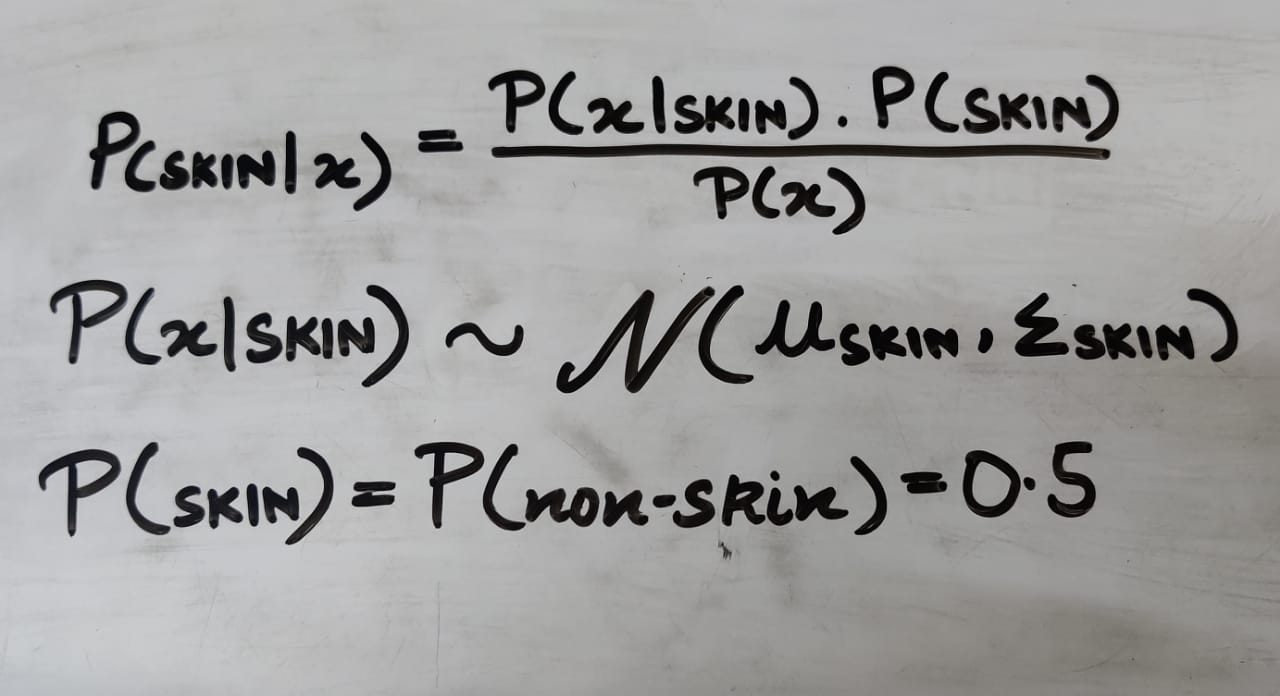 P(SKIN|x) = P(x|SKIN) . P(SKIN) / P(x)
P(x|SKIN) ~ N(μSKIN, ΣSKIN)
P(SKIN) = P(non-skin) = 0.5